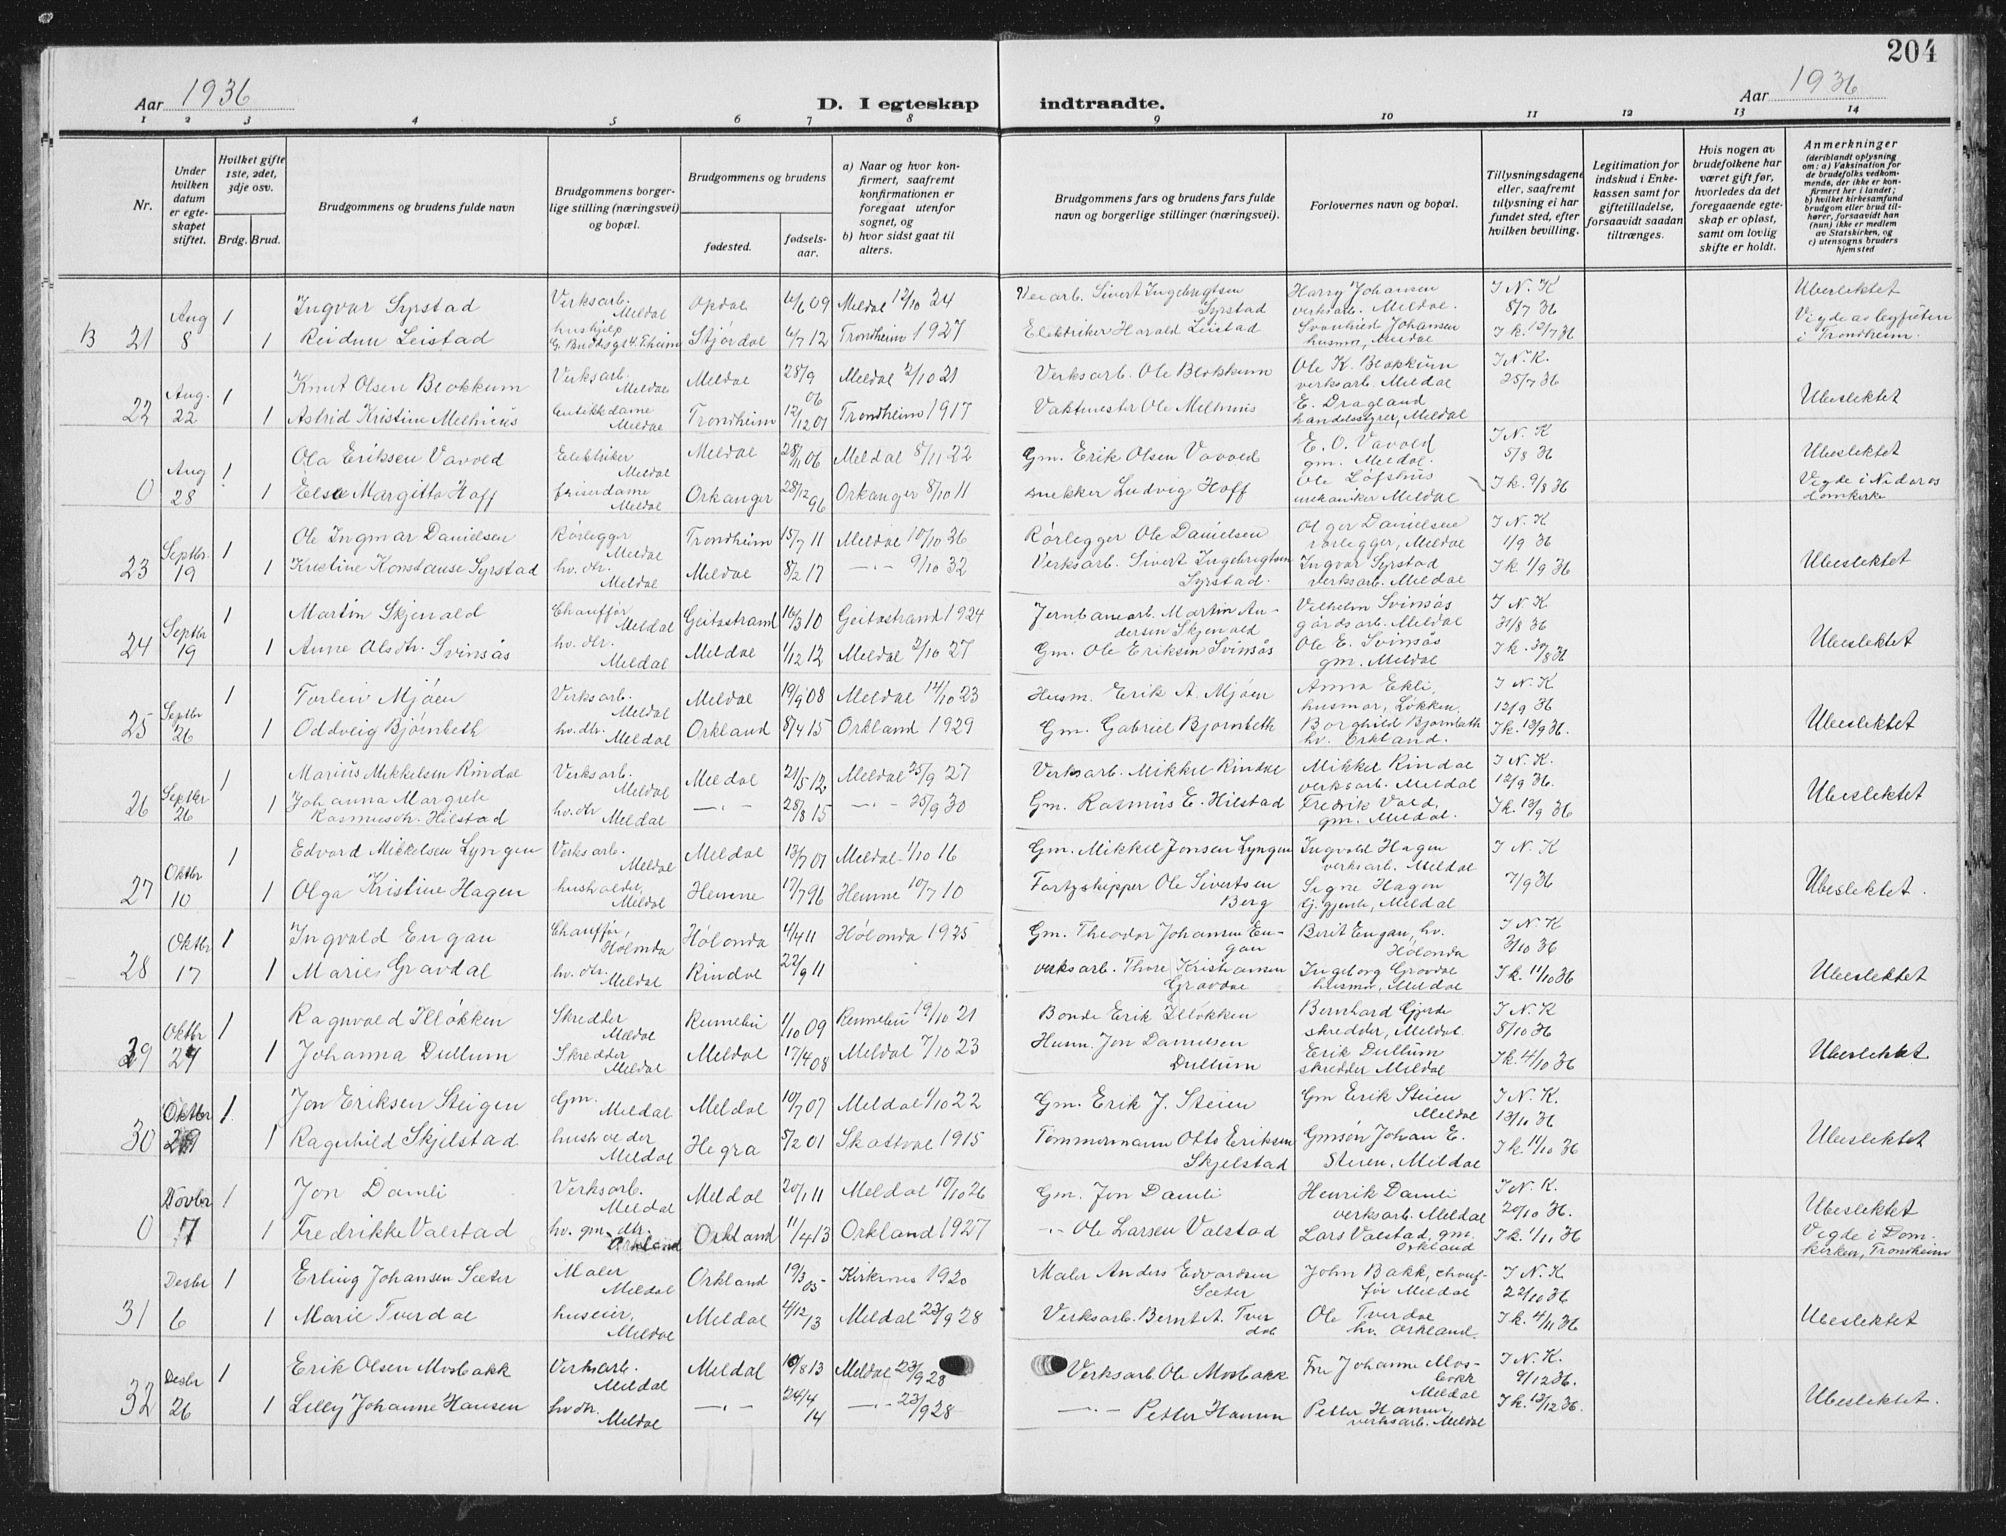 204
Aar 1936
D. I egteskap indtraadte.
Aar 1936
1 2 3 4 5 6 7 8 9 10 11 12 13 14
Nr.
Under hvilken datum er egteskapet stiftet.
Hvilket gifte 1ste, 2det, 3dje osv.
Brdg. Brud.
Brudgommens og brudens fulde navn
Brudgommens borgerlige stilling (næringsvei) og bopæl.
Brudgommens og brudens
fødested. fødselsaar.
a) Naar og hvor konfirmert, saafremt konfirmationen er foregaat utenfor sognet, og
b) hvor sidst gaat til alters.
Brudgommens fars og brudens fars fulde navn og borgerlige stillinger (næringsvei).
Forlovernes navn og bopæl.
Tillysningsdagene eller, saafremt tillysning ei har fundet sted, efter hvilken bevilling.
Legitimation for indskud i Enkekassen samt for giftetilladelse, forsaavidt saadan tiltrænges.
Hvis nogen av brudefolkene har været gift før, hvorledes da det foregaaende egteskap er opløst, samt om lovlig skifte er holdt.
Anmerkninger
(deriblandt oplysning om: a) Vaksination for de brudefolks vedkommende, der ikke er konfirmert her i landet; b) hvilket kirkesamfund brudgom eller brud tilhører, forsaavidt han (hun) ikke er medlem av Statskirken, og c) utensogns bruders hjemsted
B 21 Aug 8 1 Ingvar Syrstad Verksarb. Meldal Opdal 09 Meldal 12/10 24 Veiarb. Sivert Ingebrigtsen Syrstad Harry Johansen verksarb. Meldal. I N. K 8/7 36 Ubeslektet
1 Reidun Leistad hushjelp Stjørdal 6/7 12 Trondheim 1927 Elektriker Harald Leistad Svanhild Johansen husmor, Meldal I k. 12/7 36 Viede av byfogden i Trondheim.
22 Aug. 22 1 Knut Olsen Blokkum Verksarb. Meldal Meldal 28/9 06 Meldal 2/10 21 Verksarb. Ole Blokkum Ole K. Blokkum verksarb. Meldal I N. K. 25/7 36 Ubeslektet
1 Astrid Kristine Melhuus butikkdame Meldal Trondheim 12/12 01 Trondheim 1917 Vaktmester Ole Melhuus E. Dragland handelsstyrer, Meldal
0 Aug 28 1 Ola Eriksen Vavold Elektriker Meldal Meldal 28/11 06 Meldal 8/11 22 Gm. Erik Olsen Vavold E. O. Vavold gm. Meldal. I N. K 5/8 36 Ubeslektet
1 Else Margitta Hoff friserdame Meldal Orkanger 28/12 96 Orkanger 8/10 11 snekker Ludvig Hoff Ole Løfshus mekaniker Meldal I k. 9/8 36 Vigde i Nidaros domkirke
23 Septbr. 19 1 Ole Ingmar Danielsen Rørlegger Meldal Trondheim 15/7 11 Meldal 10/10 26 Rørlegger Ole Danielsen Olger Danielsen rørlegger, Meldal I N. K 1/9 36 Ubeslektet
1 Kristine Konstanse Syrstad hv. dtr. Meldal Meldal 8/2 17 —"— 9/10 32 Verksarb. Sivert Ingebrigtsen Syrstad. Ingvar Syrstad verksarb. Meldal I k. 1/9 36
24 Septbr 19 1 Martin Skjenald Chauffør Meldal Geitastrand 16/3 10 Geitastrand 1924 Jernbanearb. Martin Andersen Skjenald Vilhelm Svinsås gårdsarb. Meldal I N. K 31/8 36 Ubeslektet
1 Anne Olsdtr. Svinsås hv. dtr. Meldal Meldal 1/12 12 Meldal 2/10 27 Gm. Ole Eriksen Svinsås Ole E. Svinsås gm. Meldal I k. 30/8 36
25 Septbr 26 1 Torleiv Mjøen Verksarb. Meldal Meldal 19/9 08 Meldal 14/10 23 Husm. Erik A. Mjøen Anna Ekli, husmor, Løkken. I N. K 12/9 36 Ubeslektet
1 Oddveig Bjørnbeth hv. dtr. Meldal Orkland 8/4 15 Orkland 1929 Gm. Gabriel Bjørnbeth Borghild Bjørnbeth hv. Orkland. I k. 13/9 36.
26 Septbr 26 1 Marius Mikkelsen Rindal Verksarb. Meldal Meldal 21/5 12 Meldal 25/9 27 Verksarb. Mikkel Rindal Mikkel Rindal verksarb. Meldal I N. K. 12/9 36. Ubeslektet
1 Johanna Margrete Rasmusdtr. Hilstad hv. dtr Meldal —"— 28/8 15 —"— 25/9 30 Gm. Rasmus E. Hilstad Fredrik Vold, gm. Meldal. I k. 13/9 36
27 Oktbr 10 1 Edvard Mikkelsen Lyngen Verksarb. Meldal Meldal 13/7 01 Meldal 1/10 16 Gm. Mikkel Jonsen Lyngen Ingvald Hagen verksarb. Meldal I N. K 7/9 36 Ubeslektet.
1 Olga Kristine Hagen husholder, Meldal Hemne 17/7 96 Hemne 10/7 10 Fartzskipper Ole Sivertsen Berg Signe Hagen tj. gjente, Meldal
28 Oktbr 17 1 Ingvald Engan Chauffør, Hølonda Hølonda 4/4 11 Hølonda 1925 Gm. Theodor Johansen Engan Berit Engan, hv. Hølonda I N. K 3/10 36 Ubeslektet
1 Marie Gravdal hv. dtr. Meldal Rindal 22/9 11 verksarb. Thore Kristiansen Gravdal Ingeborg Gravdal husmor, Meldal I k. 11/10 36
29 Oktbr 24 1 Ragnvald Illøkken Skredder Meldal Rennebu 1/10 09 Rennebu 19/10 21 Bonde Erik Illøkken Bernhard Gjerde skredder, Meldal I N. K 8/10 36 Ubeslektet.
1 Johanna Dullum Skredder Meldal Meldal 17/4 08 Meldal 7/10 23 Husm. Jon Danielsen Dullum Erik Dullum skredder Meldal I k. 4/10 36
30 Oktbr 1 Jon Eriksen Steigen Gm. Meldal Meldal 10/7 07 Meldal 1/10 22 Gm. Erik J. Steien Gm Erik Steien Meldal I N. K. 13/10 36 Ubeslektet
1 Ragnhild Skjelstad husholder Meldal Hegra 5/2 01 Skatval 1915 Tømmermann Otto Eriksen Skjelstad Gmsøn Johan E. Steien, Meldal I k. 11/10 36
0 Novbr 7 1 Jon Damli Verksarb. Meldal Meldal 20/1 11 Meldal 10/10 26 Gm. Jon Damli Henrik Damli verksarb. Meldal I N. K. 20/10 36. Ubeslektet
1 Fredrikke Valstad hv. gm. dtr. Orkland Orkland 11/4 13 Orkland 1927 —"— Ole Larsen Valstad Lars Valstad, gm. Orkland I k. 1/11 36 Vigde i Domkirken, Trondheim
31 Desbr 6 1 Erling Johansen Sæter Maler Meldal Orkland 19/3 05 Kirkenes 1920 Maler Anders Edvardsen Sæter John Bakk, chauffør Meldal I N. K 22/10 36
1 Marie Tverdal huseier, Meldal Meldal 4/12 13 Meldal 23/9 28 Verksarb. Bernt A. Tverdal Ole Tverdal hv. Orkland. I k. 4/11 36 Ubeslektet
32 Desbr 26 1 Erik Olsen Mosbakk Verksarb. Meldal Meldal 8 13 Meldal 23/9 28 Verksarb Ole Mosbakk Fru Johanne Mosbakk Meldal I N. K. 9/12 36.
1 Lilly Johanne Hansen hv. dtr. Meldal —"— 24/4 14 —"— 23/9 28 —"— Petter Hansen Petter Hansen, verksarb. Meldal I k. 13/12 36. Ubeslektet.